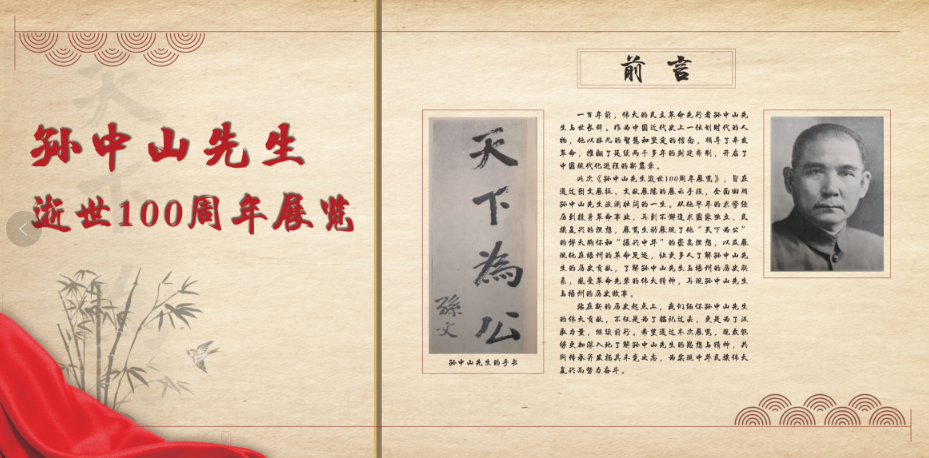 孙中山先生
逝世100周年展览
前言
天下為公
孫文
孙中山先生的手书
一百年前，伟大的民主革命先行者孙中山先
生与世长辞。作为中国近代史上一位划时代的人
物，他以非凡的智慧和坚定的信念，领导了辛亥
革命，推翻了延续两千多年的封建帝制，开启了
中国现代化进程的新篇章。
此次《孙中山先生逝世100周年展览》，旨在
通过图文展板、文献展陈的展示手段，全面回顾
孙中山先生波澜壮阔的一生。从他早年的求学经
历到投身革命事业，再到不懈追求国家独立、民
族复兴的理想，展览生动展现了他“天下为公”
的博大胸怀和“振兴中华”的崇高理想，以及展
现他在梧州的革命足迹，让更多人了解孙中山先
生的历史贡献，了解孙中山先生与梧州的历史联
系，感受革命先辈的伟大精神，再现孙中山先生
与梧州的历史故事。
站在新的历史起点上，我们缅怀孙中山先生
的伟大贡献，不仅是为了铭记过去，更是为了汲
取力量，继续前行。希望通过本次展览，观众能
够更加深入地了解孙中山先生的思想与精神，共
同传承并发扬其未竟之志，为实现中华民族伟大
复兴而努力奋斗。